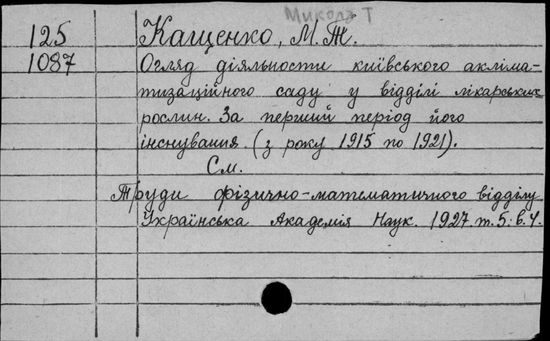 Микола Т
125 Кащенко, М. Т.
1087 Огляд діяльности київського акліма-
тизаційного саду у відділі лікарських
рослин. За перший період його
існування. (з року 1915 по 1921).
См.
Труди фізично-математичного відділу
Українська Академія Наук. 1927. т. 5. в. 4.